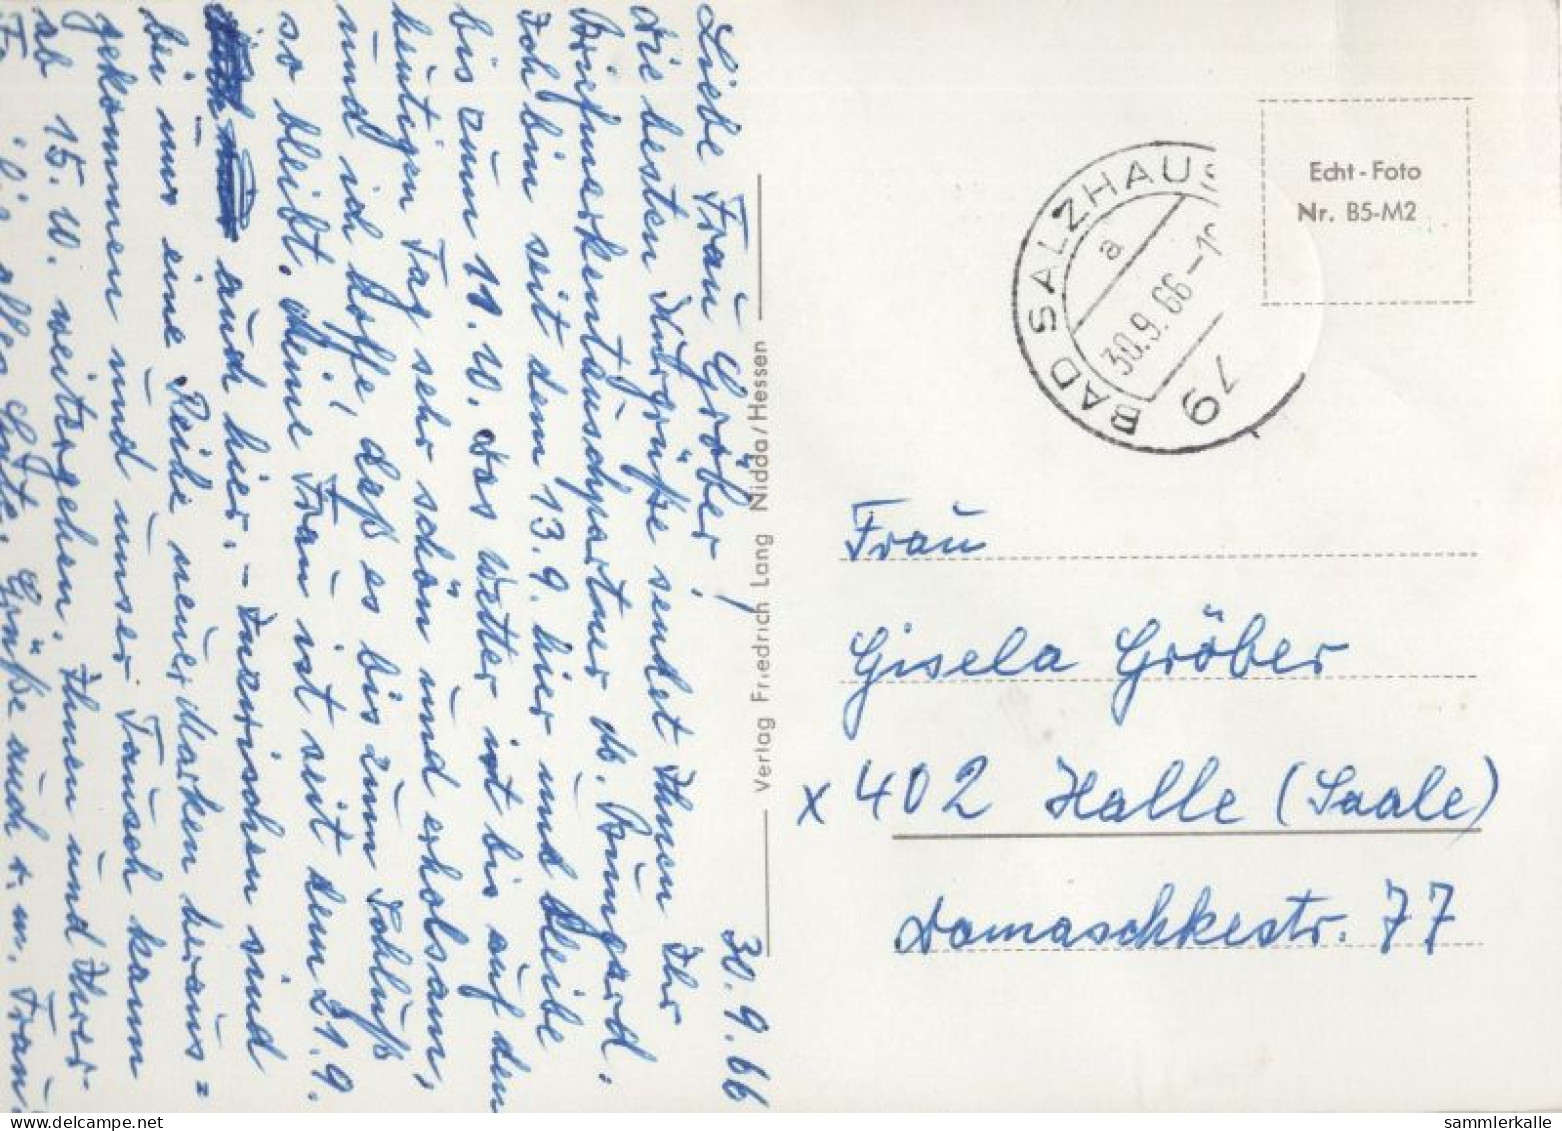 30.9.66
Liebe Frau Gröber!
Die besten Kurgrüße sendet Ihnen Ihr
Briefmarkentauschpartner M. Baumgard.
Ich bin seit dem 13.9. hier und bleibe
bis zum 11.10. Das Wetter ist bis auf den
heutigen Tag sehr schön und erholsam,
und ich hoffe, daß es bis zum Schluß
so bleibt. Meine Frau ist seit dem 21.9.
auch hier. – Inzwischen sind
bei mir eine Reihe neuer Marken heraus=
gekommen und unser Tausch kann
ab 15.10. weitergehen. Ihnen und Ihrer
alles Gute. Grüße auch v. m. Frau.
Verlag Friedrich Lang Nidda/Hessen
BAD SALZHAUS
a
30.9.66-1
79
Echt-Foto
Nr. B5-M2
Frau
Gisela Gröber
x 402 Halle (Saale)
Damaschkestr. 77
sammlerkalle